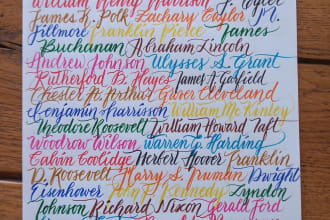 William Henry Harrison J. Tyler
James K. Polk Zachary Taylor M.
Fillmore Franklin Pierce James
Buchanan Abraham Lincoln
Andrew Johnson Ulysses S. Grant
Rutherford B. Hayes James A Garfield
Chester A. Arthur Grover Cleveland
Benjamin Harrison William McKinley
Theodore Roosevelt William Howard Taft
Woodrow Wilson Warren G. Harding
Calvin Coolidge Herbert Hoover Franklin
D. Roosevelt Harry S. Truman Dwight
Eisenhower John F. Kennedy Lyndon
Johnson Richard Nixon Gerald Ford